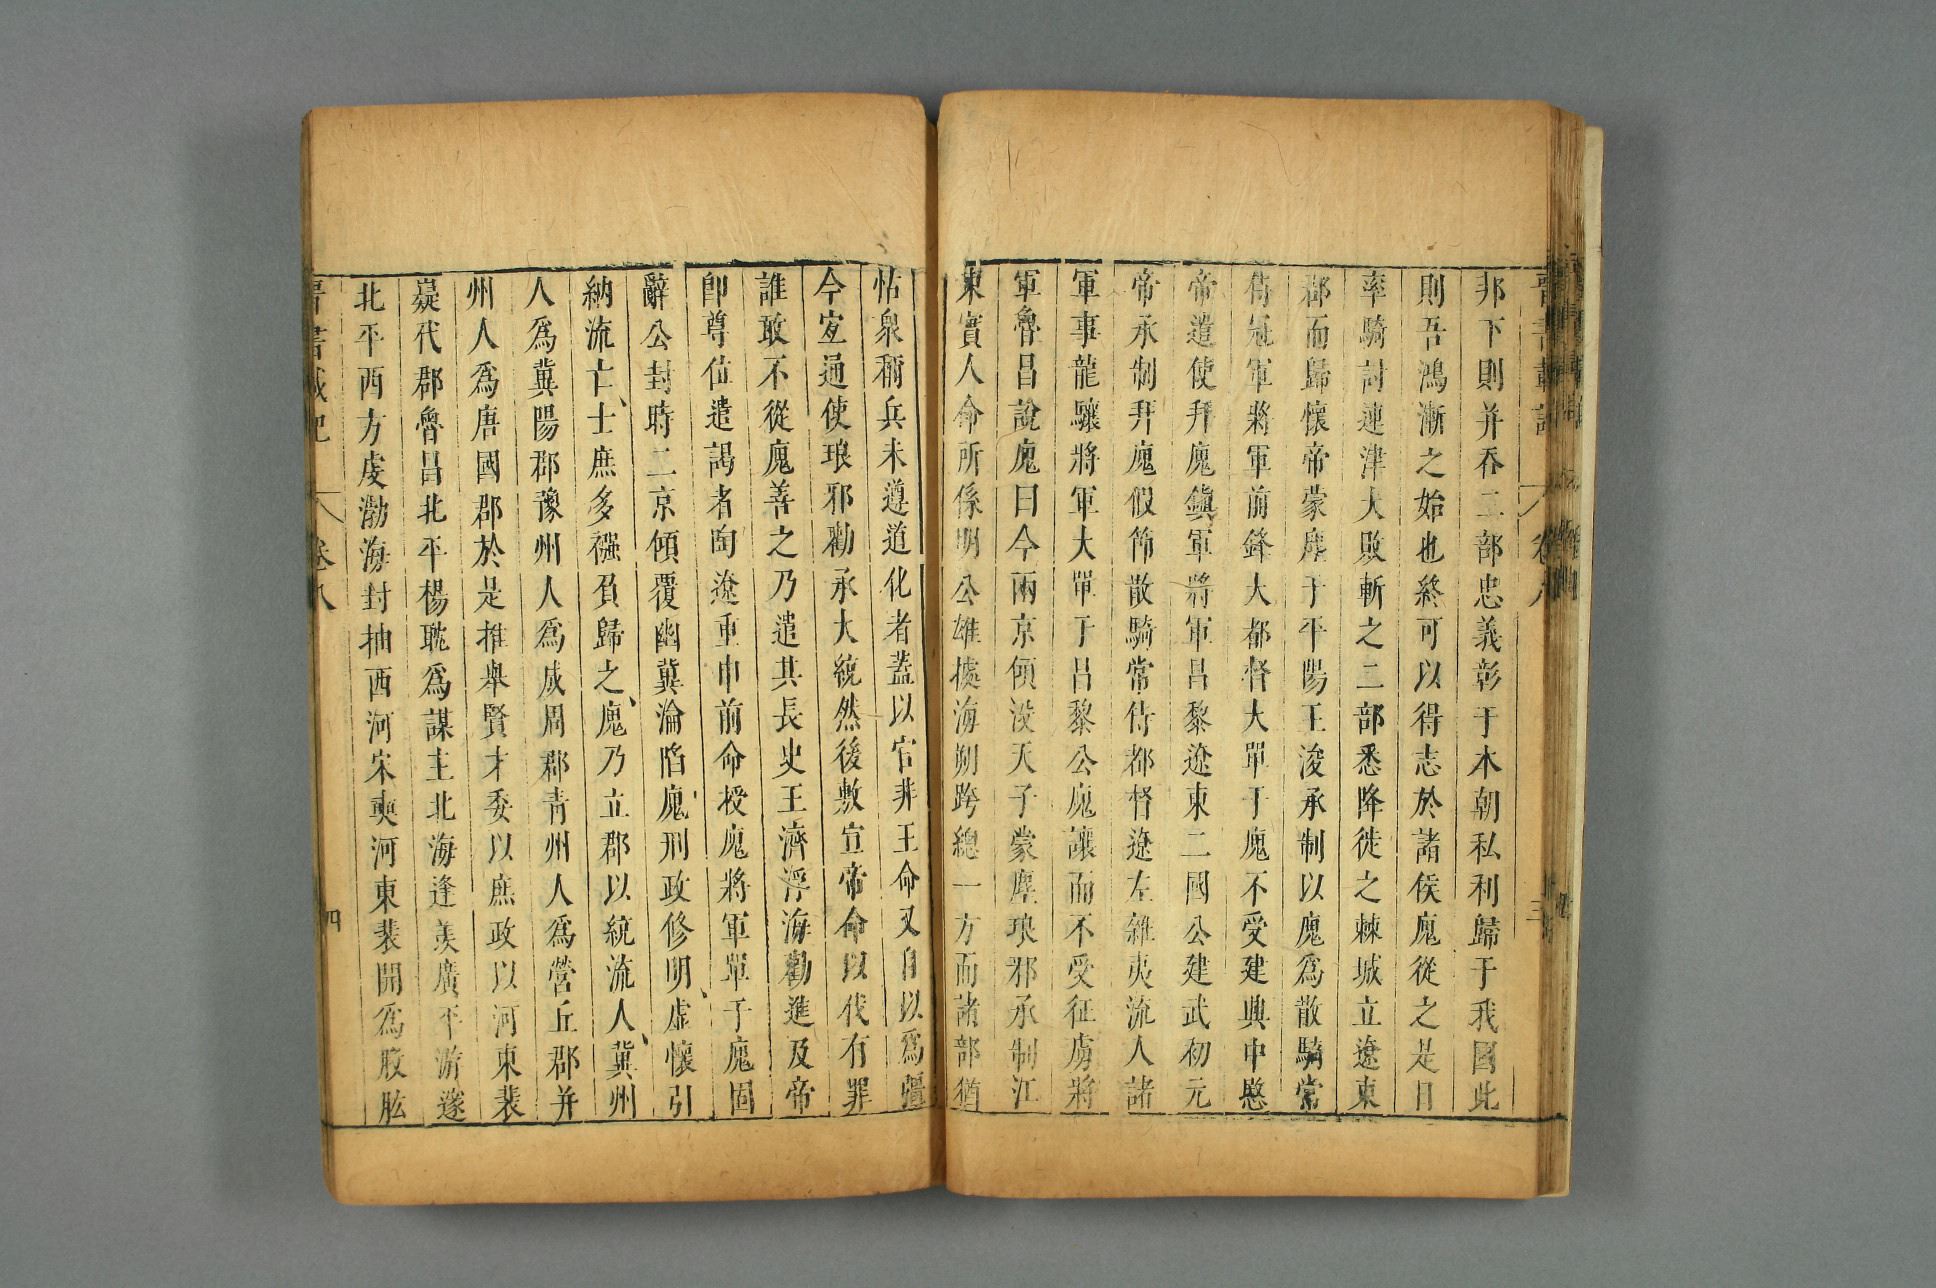 晉書載記 卷八 三
邦下則并吞二部忠義彰于本朝私利歸于我國此
則吾鴻漸之始也終可以得志於諸侯廆從之是日
率騎討連津大敗斬之二部悉降徙之棘城立遼東
郡而歸懷帝蒙塵于平陽王浚承制以廆為散騎常
侍冠軍將軍前鋒大都督大單于廆不受建興中愍
帝遣使拜廆鎮軍將軍昌黎遼東二國公建武初元
帝承制拜廆假節散騎常侍都督遼左雜夷流人諸
軍事龍驤將軍大單于昌黎公廆讓而不受征虜將
軍魯昌說廆曰今兩京傾沒天子蒙塵琅邪承制江
東實人命所係明公雄據海朔跨總一方而諸部猶
怙衆稱兵未遵道化者蓋以官非王命又自以爲彊
今宜通使琅邪勸承大統然後敷宣帝命以伐有罪
誰敢不從廆善之乃遣其長史王濟浮海勸進及帝
即尊位遣謁者陶遼重申前命授廆將軍單于廆固
辭公封時二京傾覆幽冀淪陷廆刑政修明、虛懷引
納流亡、士庶多襁負歸之、廆乃立郡以統流人、冀州
人爲冀陽郡豫州人爲成周郡青州人爲營丘郡并
州人爲唐國郡於是推舉賢才委以庶政以河東裴
嶷代郡魯昌北平楊耽爲謀主北海逢羨廣平游邃
北平西方虔渤海封抽西河宋奭河東裴開爲股肱
晉書載記 卷八 四